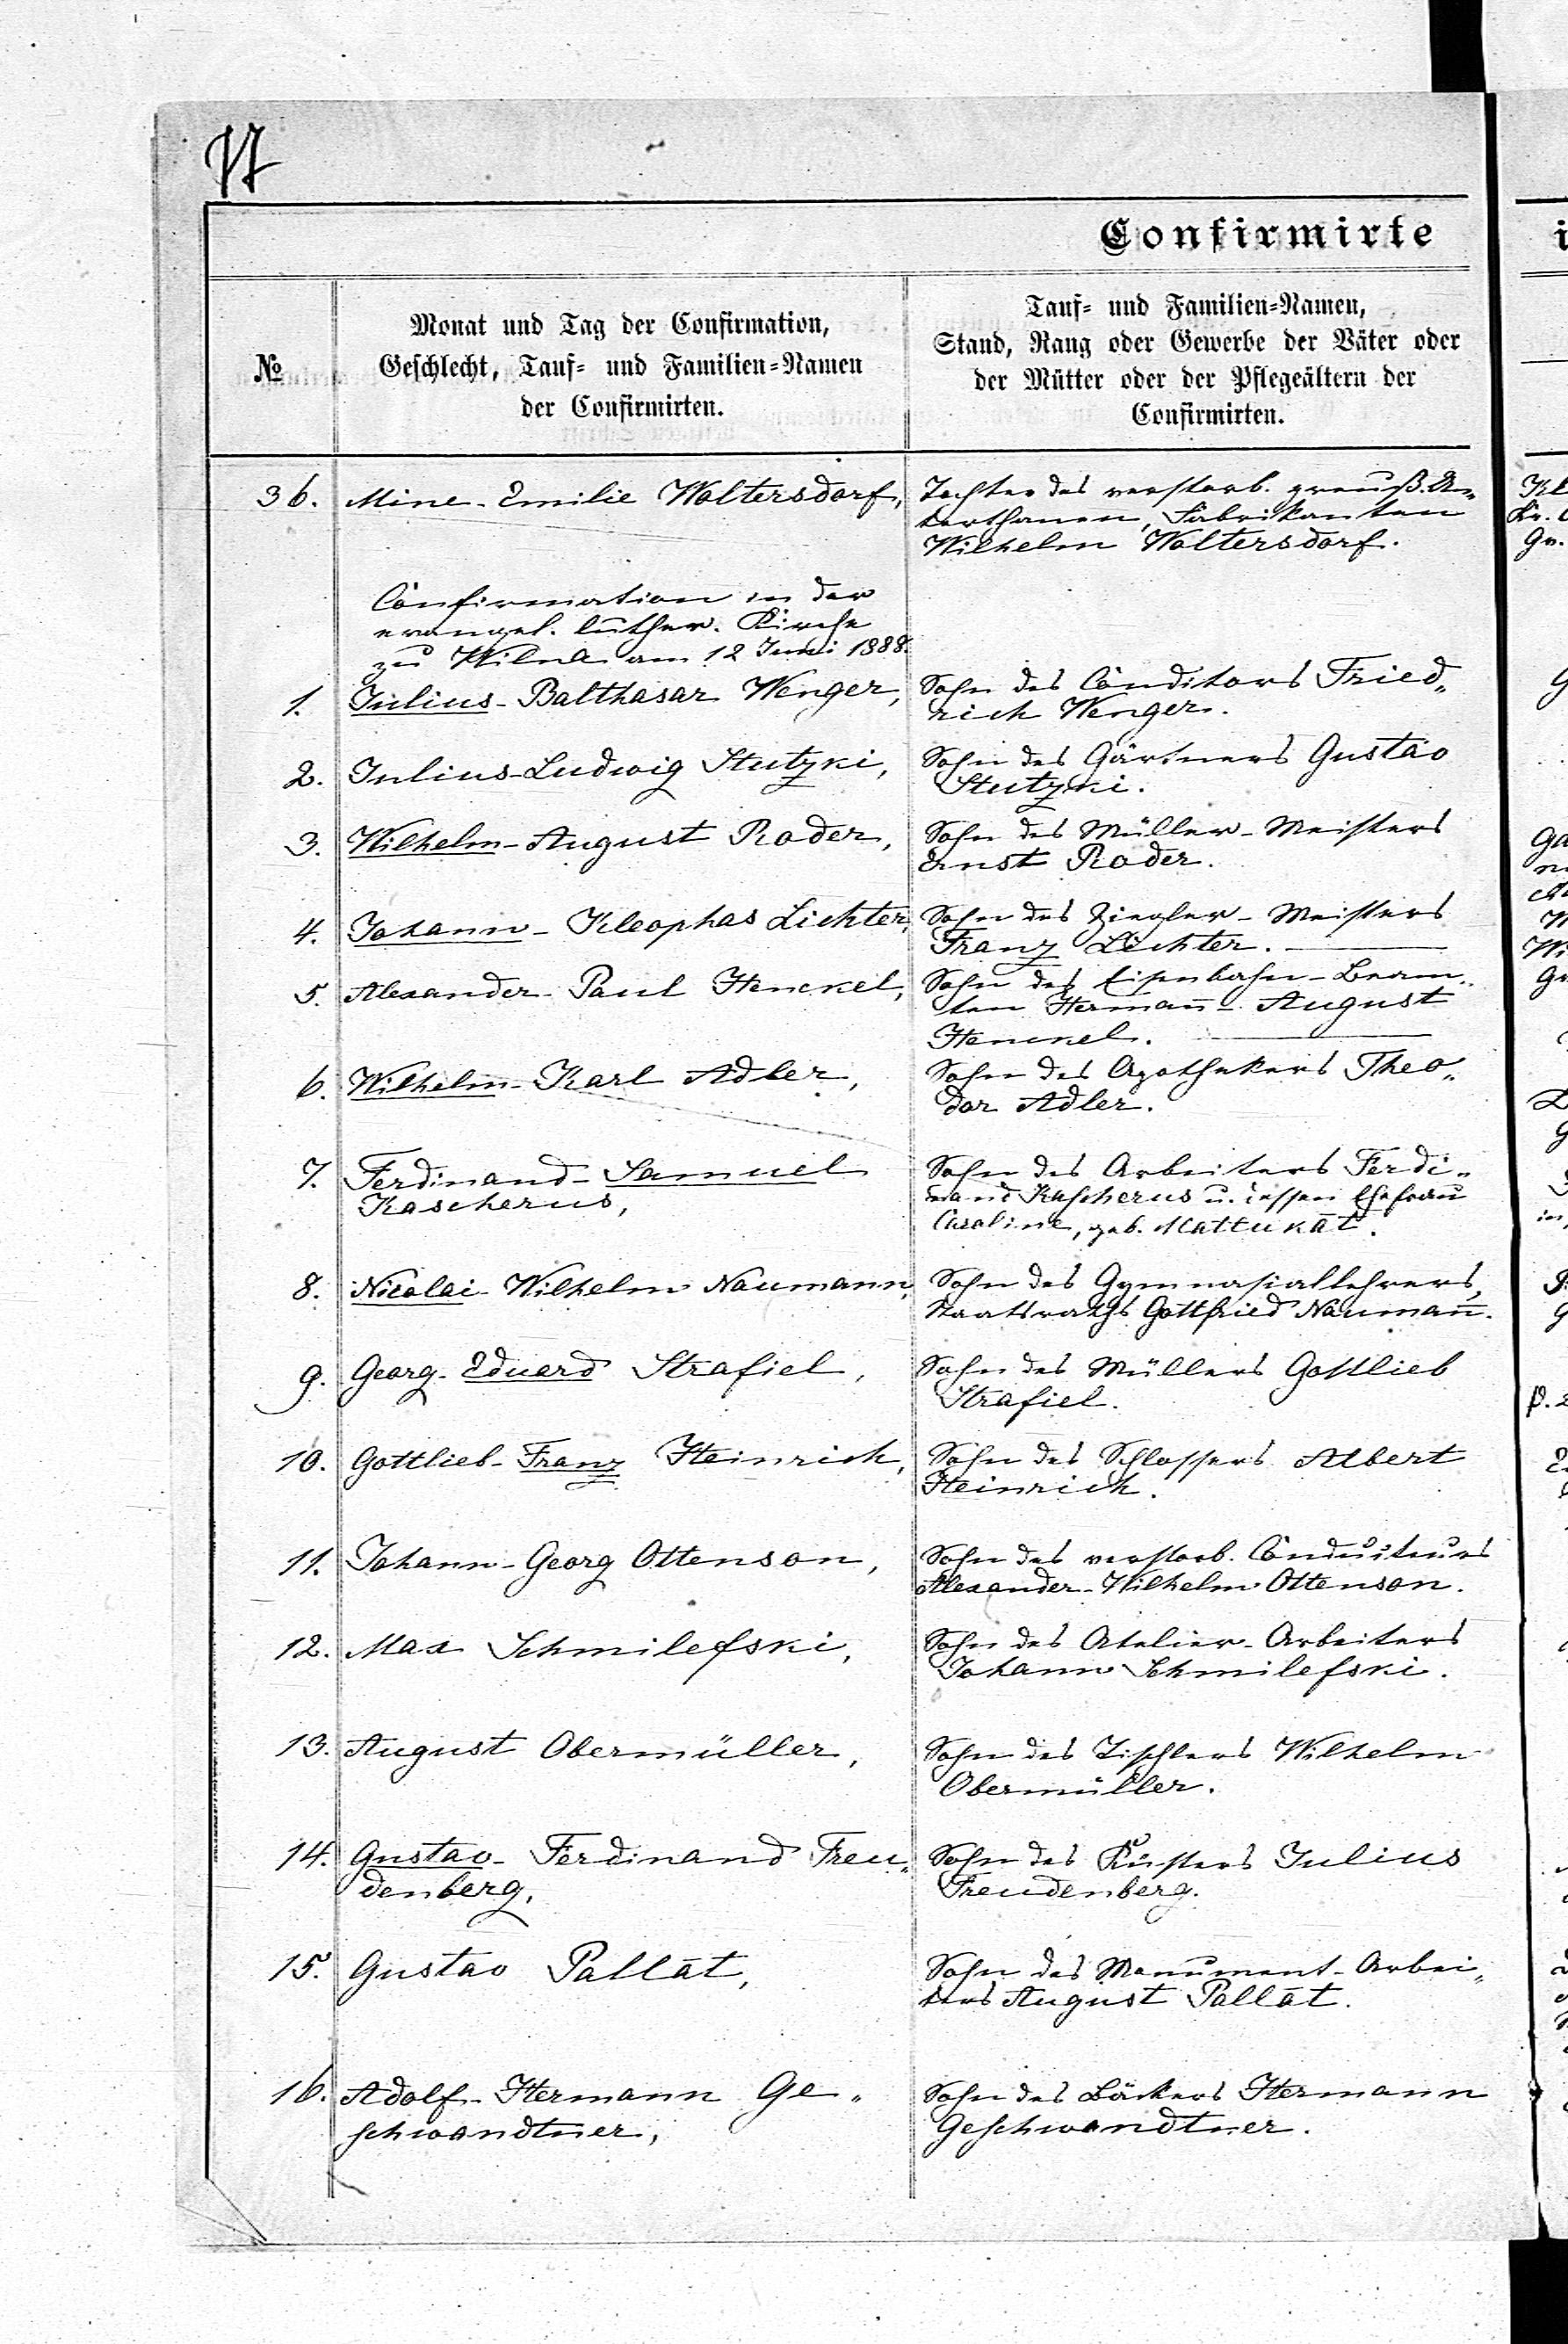 Confirmirte
№
Monat und Tag der Confirmation,
Geschlecht, Tauf- und Familien-Namen
der Confirmirten.
Tauf- und Familien-Namen,
Stand, Rang oder Gewerbe der Väter oder
der Mütter oder der Pflegeältern der
Confirmirten.
36. Mine-Emilie Woltersdorf,
Tochter des verstorb. preuß. Un-
terthanen, Fabrikanten
Wilhelm Woltersdorf.
Confirmation in der
evangel. luther. Kirche
zu Wilna am 12 Juni 1888.
1. Julius-Balthasar Wenger,
Sohn des Conditors Fried„
rich Wenger.
2. Julius-Ludwig Stutzki,
Sohn des Gärtners Gustav
Stutzki.
3. Wilhelm-August Rader,
Sohn des Müller-Meisters
Ernst Rader.
4. Johann-Kleophas Lichter,
Sohn des Ziegler-Meisters
Franz Lichter.
5. Alexander-Paul Henckel,
Sohn des Eisenbahn-Beam„
ten Herman̄-August
Henckel.
6. Wilhelm-Karl Adler,
Sohn des Apothekers Theo„
dor Adler.
7. Ferdinand-Samuel
Kascherus,
Sohn des Arbeiters Ferdi„
nand Kascherus u. dessen Ehefrau
Caroline, geb. Mattukāt.
8. Nicolai-Wilhelm Naumann,
Sohn des Gymnasiallehrers,
Staatsraths Gottfried Nauman̄.
9. Georg-Eduard Strafiel,
Sohn des Müllers Gottlieb
Strafiel.
10. Gottlieb-Franz Heinrich,
Sohn des Schlossers Albert
Heinrich.
11. Johann-Georg Ottenson,
Sohn des verstorb. Conduiteurs
Alexander-Wilhelm Ottenson.
12. Max Schmilefski,
Sohn des Atelier-Arbeiters
Johann Schmilefski.
13. August Obermüller,
Sohn des Tischlers Wilhelm
Obermüller.
14. Gustav-Ferdinand Freu„
denberg,
Sohn des Küsters Julius
Freudenberg.
15. Gustav Pallāt,
Sohn des Monument-Arbei„
ters August Pallāt.
16. Adolf-Hermann Ge„
schwandtner,
Sohn des Bäckers Hermann
Geschwandtner.